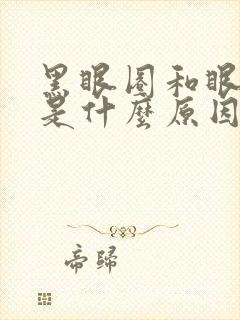 黑眼圈和眼
是什麼原因
帝歸